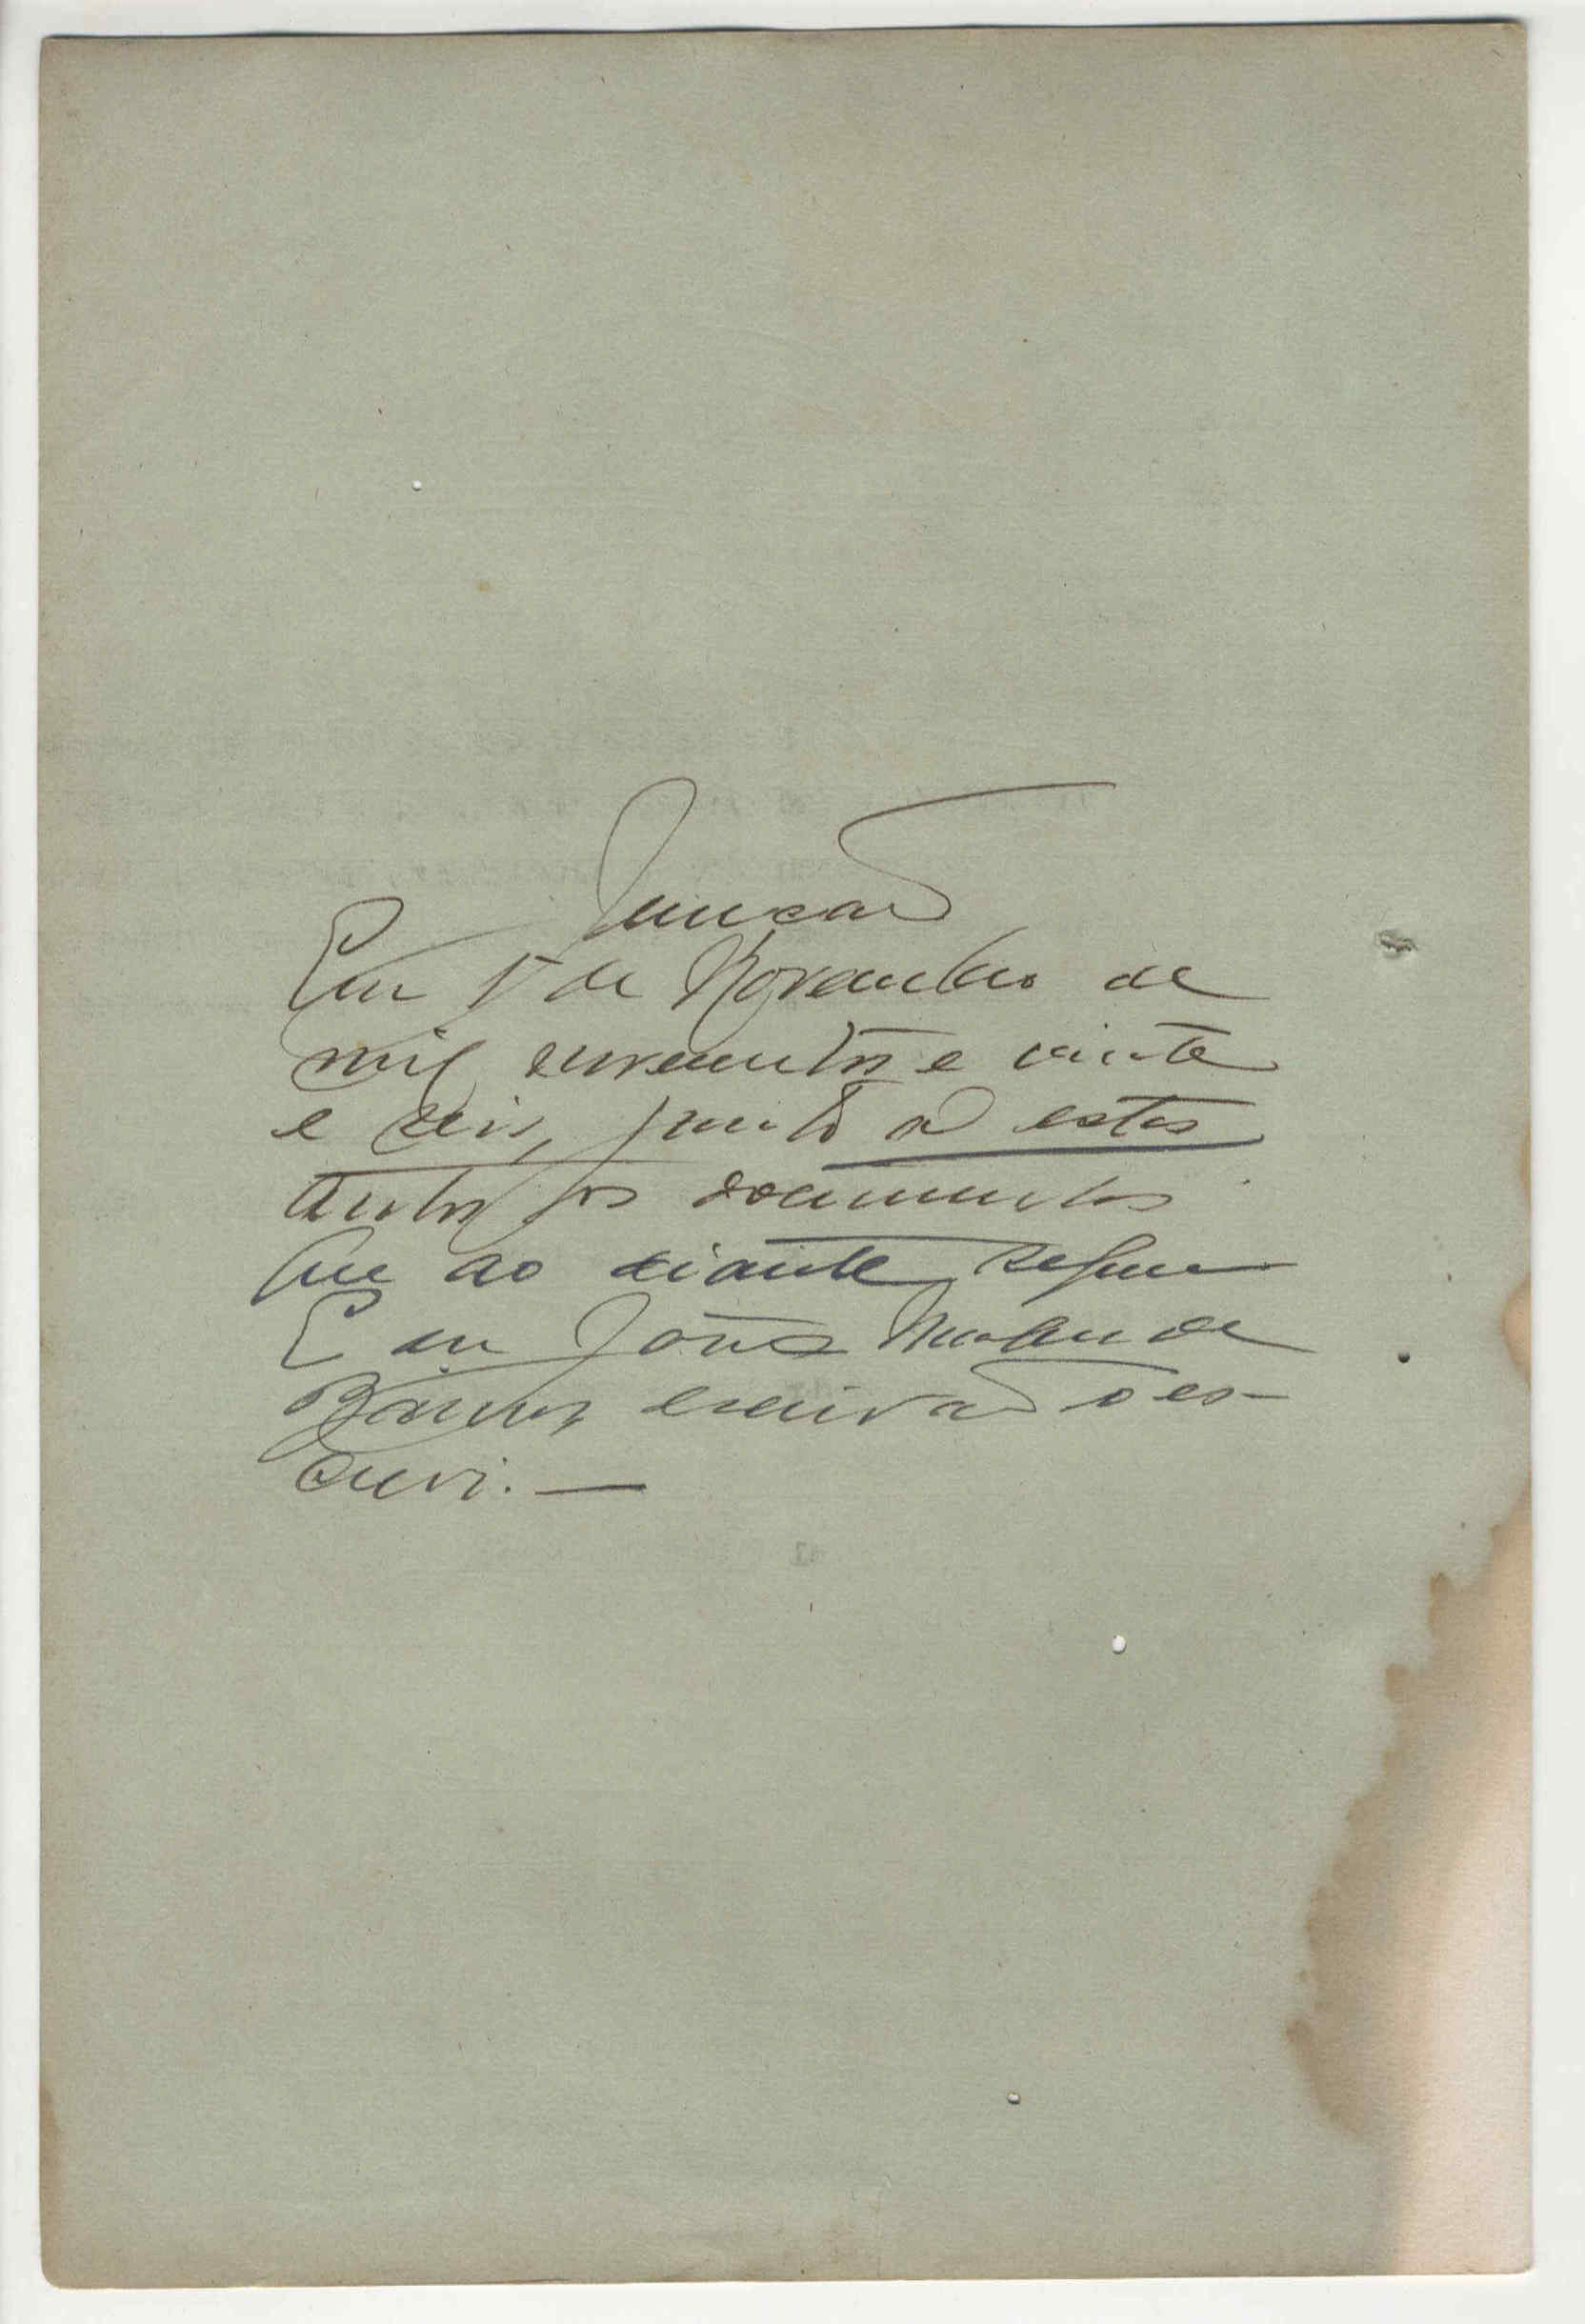 Juncão
Em 5 de Novembro de
mil novecentos e vinte
e seis, junto a estes
autos os documentos
que ao diante segue
E eu João de
Barros escrivão o es-
crevi. —